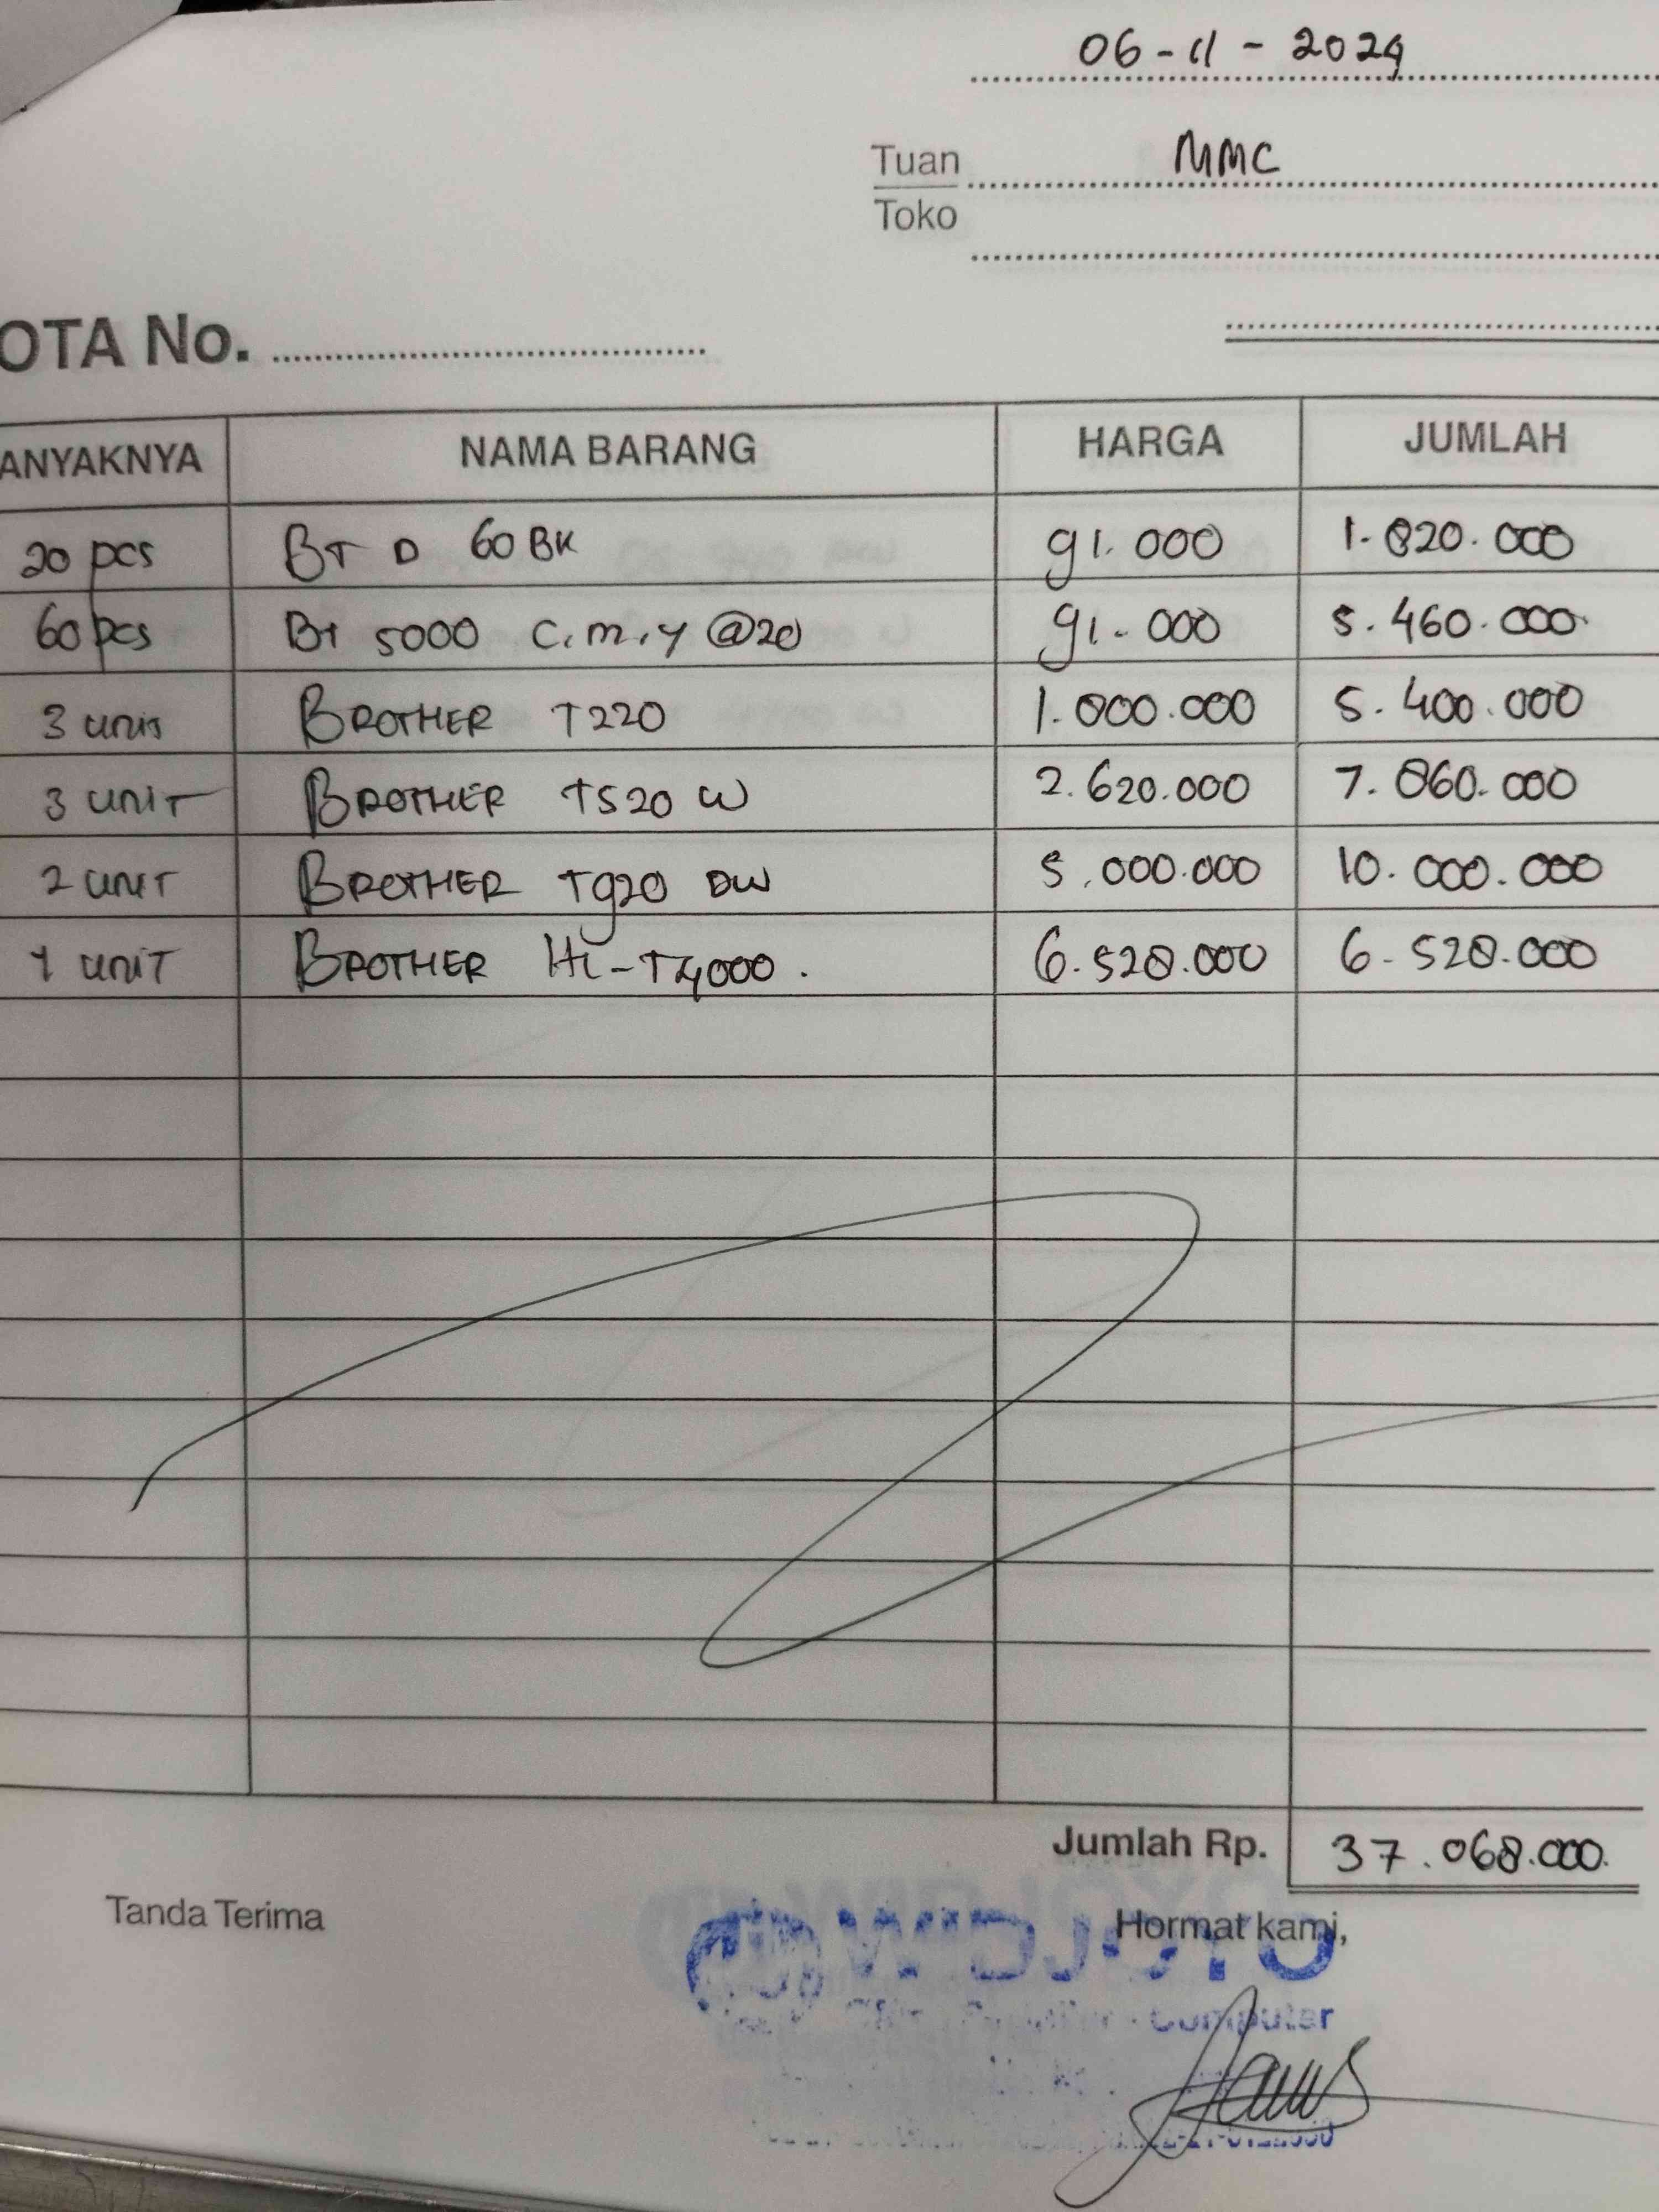 06-11-2024
Tuan MMC
Toko
OTA No.
ANYAKNYA NAMA BARANG HARGA JUMLAH
20 pcs BT D 60 BK 91.000 1.820.000
60 pcs BT 5000 C.M.Y @20 91.000 5.460.000
3 unit BROTHER T220 1.800.000 5.400.000
3 UNIT BROTHER T520 W 2.620.000 7.860.000
2 UNIT BROTHER T920 DW 5.000.000 10.000.000
1 UNIT BROTHER HL-T4000. 6.528.000 6.528.000
Jumlah Rp. 37.068.000
Tanda Terima Hormat kami,
WIDJOYO
Computer